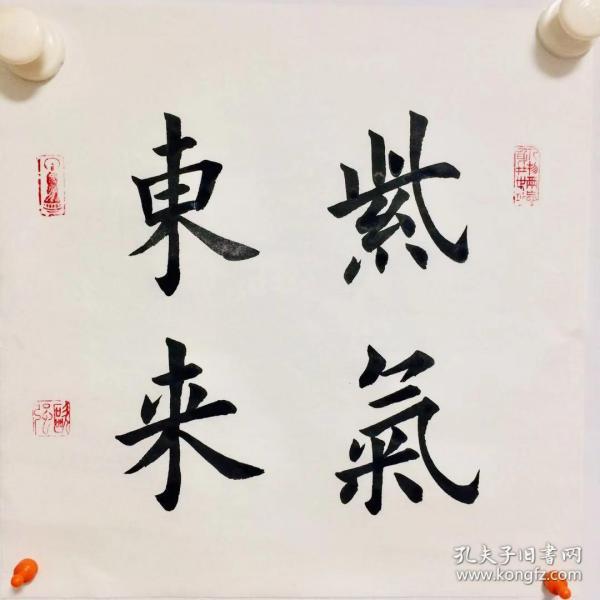 紫氣
東来
孔夫子旧書网
www.kongfz.com